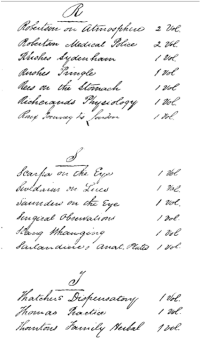 R
Robertson on Atmosphere 2 Vol.
Robertson Medical Police 2 Vol.
Rushes Sydenham 1 Vol
Rushes Pringle 1 Vol
Rees on the Stomach 1 Vol
Richerands Physiology 1 Vol
to London 1 Vol.
S
Scarpa on the Eye 1 Vol.
on Lues 1 Vol
Saunders on the Eye 1 Vol.
Surgical Observations 1 Vol.
1 Vol
Anat. Plates 1 Vol
T
Thatcher's Dispensatory 1 Vol.
Thomas Practice 1 Vol.
Thorntons Family Herbal 1 Vol.